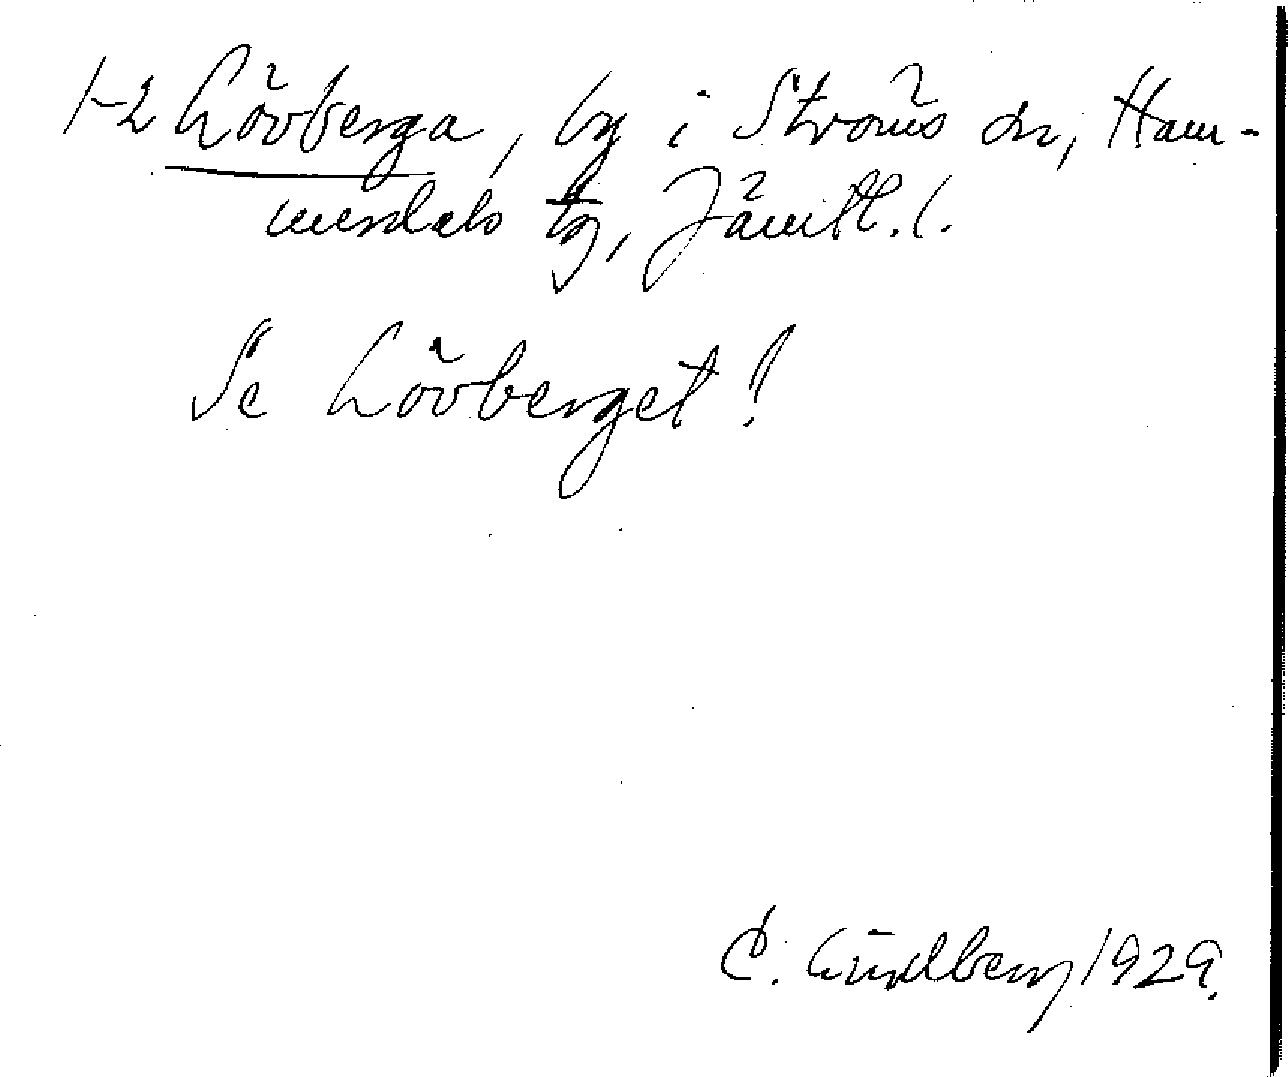 1-2 Lövberga, by i Ströms sn, Ham-
merdals tg, Jämtl. l.
Se Lövberget!
E. Lundberg 1929.